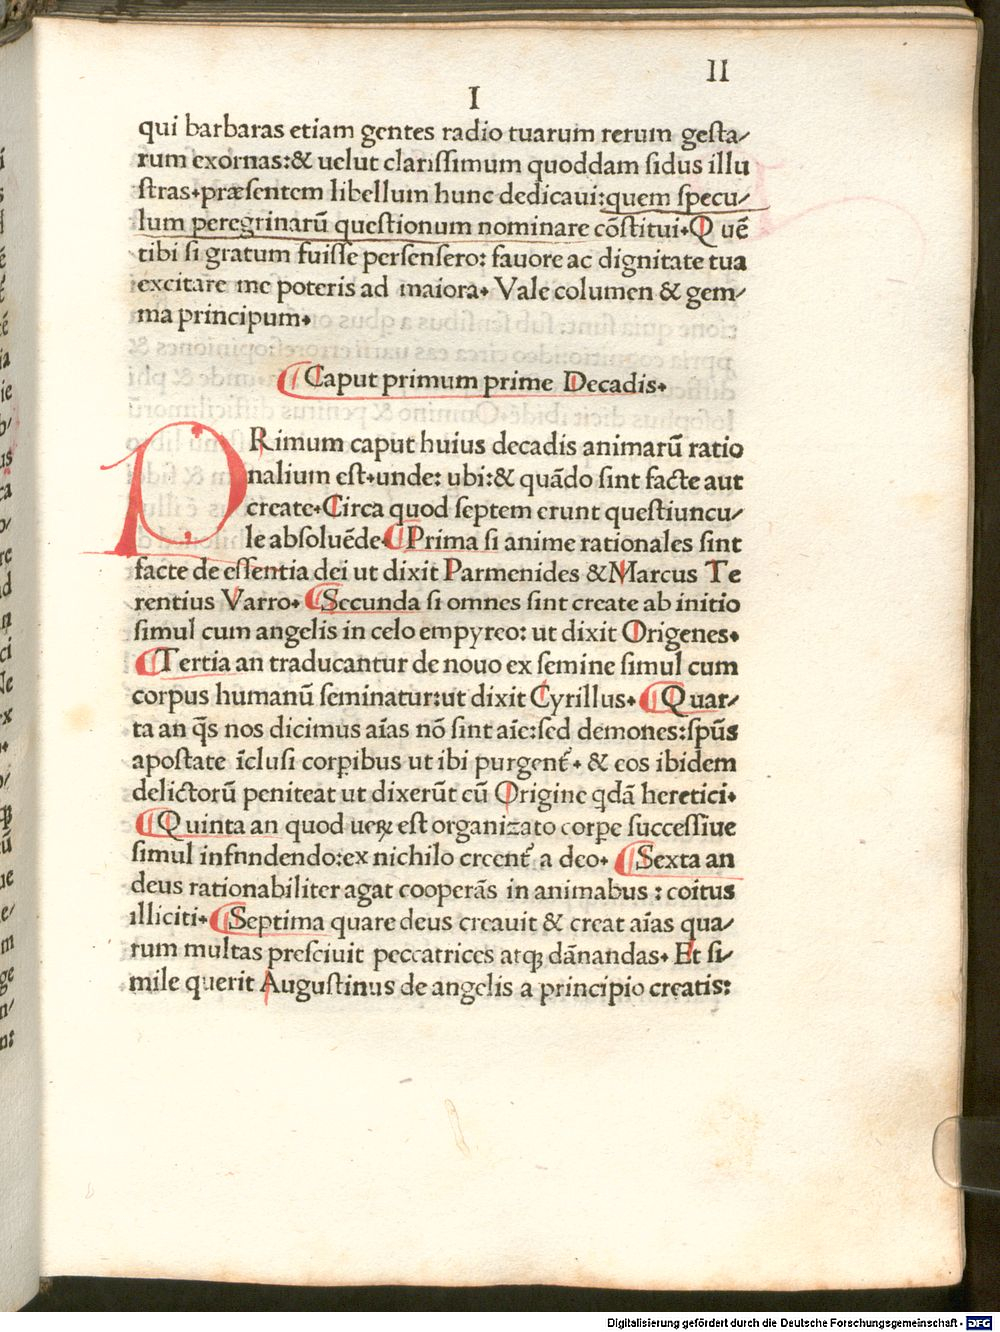 II
I
qui barbaras etiam gentes radio tuarum rerum gesta/
rum exornas:& uelut clarissimum quoddam sidus illu
stras.præsentem libellum hunc dedicaui:quem specu/
lum peregrinarū questionum nominare cōstitui.Quē
tibi si gratum fuisse persensero: fauore ac dignitate tua
excitare me poteris ad maiora. Vale columen & gem/
ma principum.
Caput primum prime Decadis.
PRimum caput huius decadis animarū ratio
nalium est.unde: ubi:& quādo sint facte aut
create.Circa quod septem erunt questiuncu/
le absoluēde. Prima si anime rationales sint
facte de essentia dei ut dixit Parmenides & Marcus Te
rentius Varro. Secunda si omnes sint create ab initio
simul cum angelis in celo empyreo: ut dixit Origenes.
Tertia an traducantur de nouo ex semine simul cum
corpus humanū seminatur:ut dixit Cyrillus. Quar/
ta an q̄s nos dicimus aīas nō sint aīe:sed demones:spūs
apostate īclusi corꝑibus ut ibi purgent᷑. & eos ibidem
delictorū peniteat ut dixerūt cū Origine qdā heretici.
Quinta an quod ueꝝ est organizato corꝑe successiue
simul infundendo:ex nichilo creent᷑ a deo. Sexta an
deus rationabiliter agat cooperās in animabus : coitus
illiciti. Septima quare deus creauit & creat aīas qua/
rum multas presciuit peccatrices atqꝫ dānandas. Et si/
mile querit Augustinus de angelis a principio creatis:
Digitalisierung gefördert durch die Deutsche Forschungsgemeinschaft - DFG